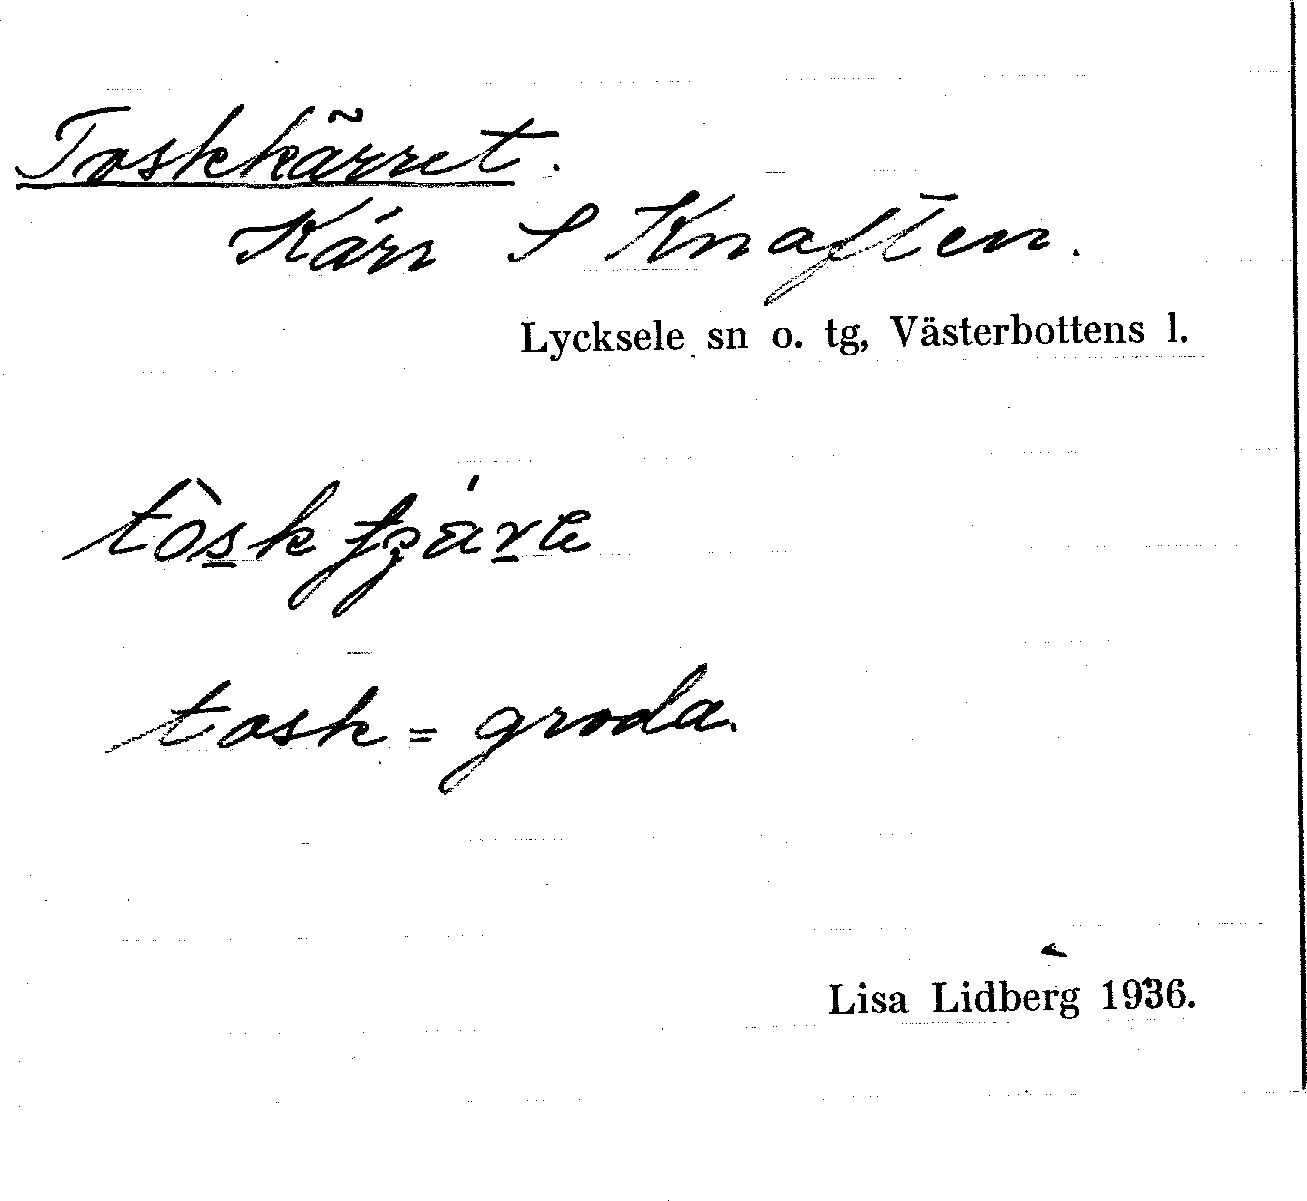 Toskkärret.
Kärr S Knaften.
Lycksele sn o. tg, Västerbottens l.
tosk = groda.
Lisa Lidberg 1936.